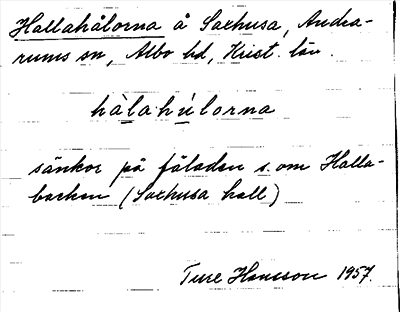 Hallahålorna å Saxhusa, Andra-
rums sn, Albo hd, Krist. län.
hàlahúlorna
sänkor på fäladen s. om Halla-
backen (Saxhusa hall)
Ture Hansson 1957.